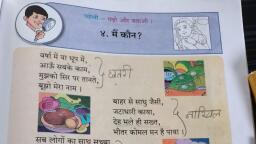 पहेली - पढ़ो और बताओ ।
४. मैं कौन?
वर्षा में या धूप में,
आऊँ सबके काम,
मुझको सिर पर तानते,
बूझो मेरा नाम ।
छतरी
बाहर से साधु जैसी,
जटाधारी काया,
देह भले ही सख्त,
भीतर कोमल मन है पाया ।
नारियल
सब लोगों का साथ सच्चा